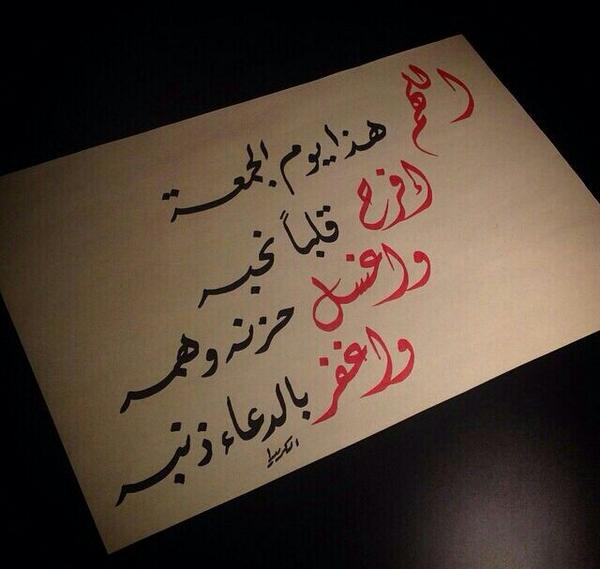 اللهم هذا يوم الجمعة
إفرح قلباً نحبه
واغسل حزنه وهمه
واغفر بالدعاء ذنبه